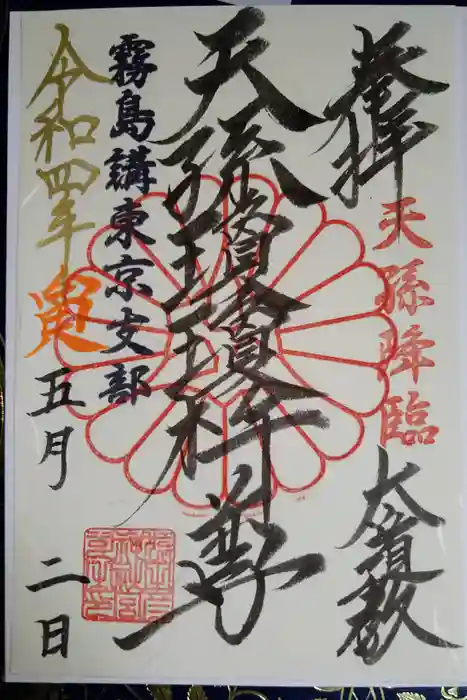 奉拝
天孫降臨
天孫瓊瓊杵尊
霧島講東京支部
令和四年
寅
五月
二日